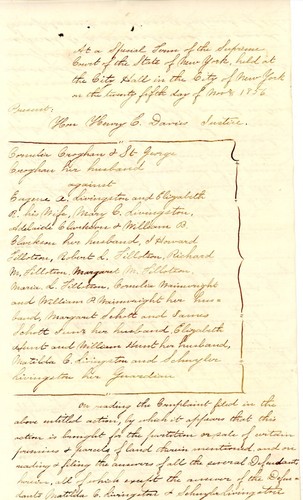 At a Special Term of the Supreme
Court of the State of New York, held at
the City Hall in the City of New York
on the twenty fifth day of Novr 1856
Present,
Hon Henry E. Davies Justice.
Cornelia Croghan & St George
Croghan her husband
against
Eugene A. Livingston and Elizabeth
R. his Wife, Mary C. Livingston,
Adelaide Clarkson & William B.
Clarkson her husband, J Howard
Tillotson, Robert L. Tillotson, Richard
M. Tillotson, Margaret M. Tillotson,
Maria L. Tillotson, Cornelia Wainwright
and William P. Wainwright her Hus-
band, Margaret Schott and James
Schott Junr her husband, Elizabeth
Hunt and William Hunt her husband,
Matilda C. Livingston and Schuyler
Livingston her Guardian.
On reading the Complaint filed in the
above entitled action, by which it appears that this
action is brought for the partition or sale of certain
premises & parcels of land therein mentioned, and on
reading & filing the answers of all the several Defendants
herein, all of which except the answer of the Defen-
dants Matilda C. Livingston & Schuyler Livingston